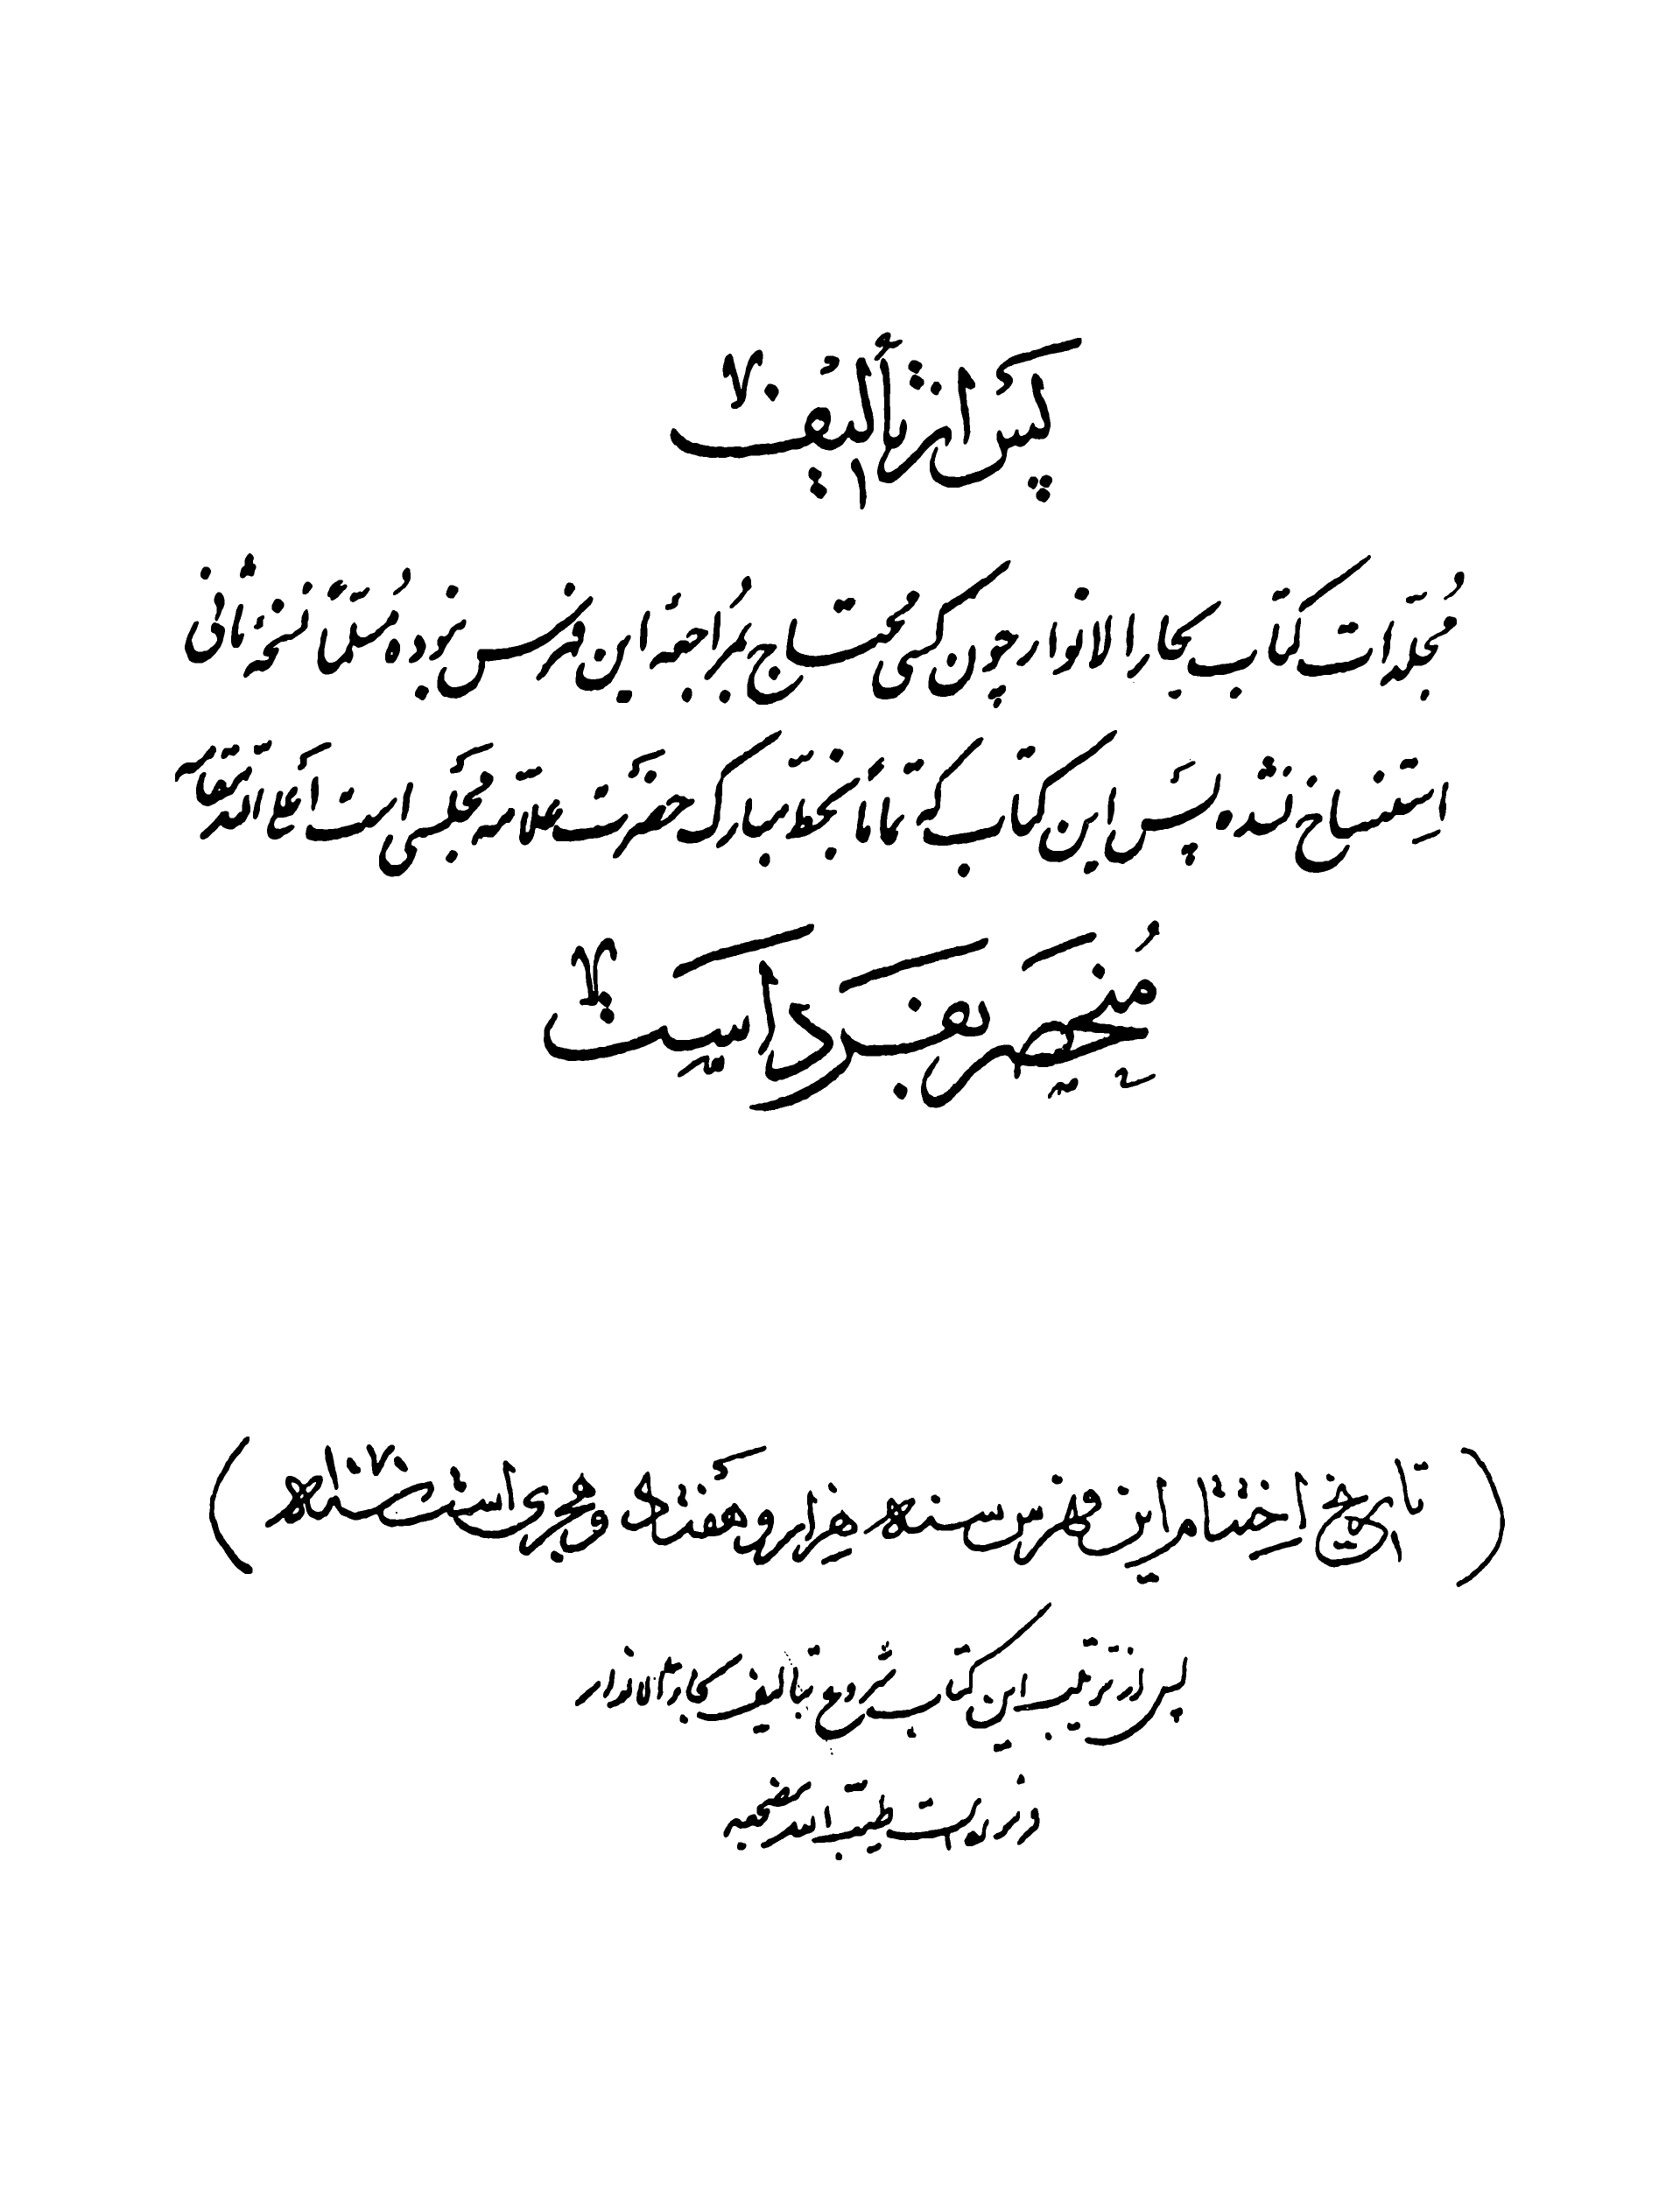 پس از تألیف
مجلدات کتاب بحار الانوار چون کسی محتاج بمراجعه این فهرس نبوده مستقلاً نسخه ثانی
استنساخ نشده پس این کتاب که تماماً بخط مبارک حضرت علامه مجلسی است اعلی الله مقامه
منحصر بفرد است
( تاریخ اختتام این فهرس سنه هزار و هفتاد هجری است )
پس از ترتیب این کتاب شروع بتألیف بحار الانوار